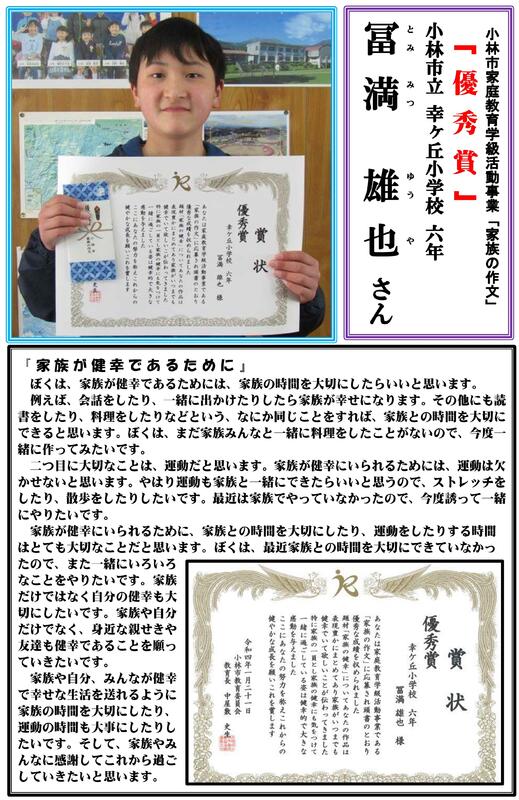 小林市家庭教育学級活動事業「家族の作文」
『優秀賞』
小林市立 幸ヶ丘小学校 六年
とみ みつ ゆう や
冨満 雄也 さん
賞状
優秀賞
幸ケ丘小学校 六年
冨満 雄也 様
『家族が健幸であるために』
ぼくは、家族が健幸であるためには、家族の時間を大切にしたらいいと思います。
例えば、会話をしたり、一緒に出かけたりしたら家族が幸せになります。その他にも読
書をしたり、料理をしたりなどという、なにか同じことをすれば、家族との時間を大切に
できると思います。ぼくは、まだ家族みんなと一緒に料理をしたことがないので、今度一
緒に作ってみたいです。
二つ目に大切なことは、運動だと思います。家族が健幸にいられるためには、運動は欠
かせないと思います。やはり運動も家族と一緒にできたらいいと思うので、ストレッチを
したり、散歩をしたりしたいです。最近は家族でやっていなかったので、今度誘って一緒
にやりたいです。
家族が健幸にいられるために、家族との時間を大切にしたり、運動をしたりする時間
はとても大切なことだと思います。ぼくは、最近家族との時間を大切にできていなかっ
たので、また一緒にいろいろ
なことをやりたいです。家族
だけではなく自分の健幸も大
切にしたいです。家族や自分
だけでなく、身近な親せきや
友達も健幸であることを願っ
ていきたいです。
家族や自分、みんなが健幸
で幸せな生活を送れるように
家族の時間を大切にしたり、
運動の時間も大事にしたりし
たいです。そして、家族やみ
んなに感謝してこれから過ご
していきたいと思います。
賞状
優秀賞
幸ケ丘小学校 六年
冨満 雄也 様
あなたは家庭教育学級活動事業である
「家族の作文」に応募され頭書のとおり
優秀な成績を収められました
題材「家族の健幸」についてあなたの作品は
表現豊かにまとめてあり家族がいつまでも
健幸でいて欲しいことが伝わってきました
特に家族の一員として家族の健幸にも気をつけて
一緒に過ごしている姿は健幸的で大きな
感動を与えました
ここにあなたの努力を称えこれからの
健やかな成長を願いこれを賞します
令和四年一月二十一日
小林市教育委員会
教育長 中屋敷 史生